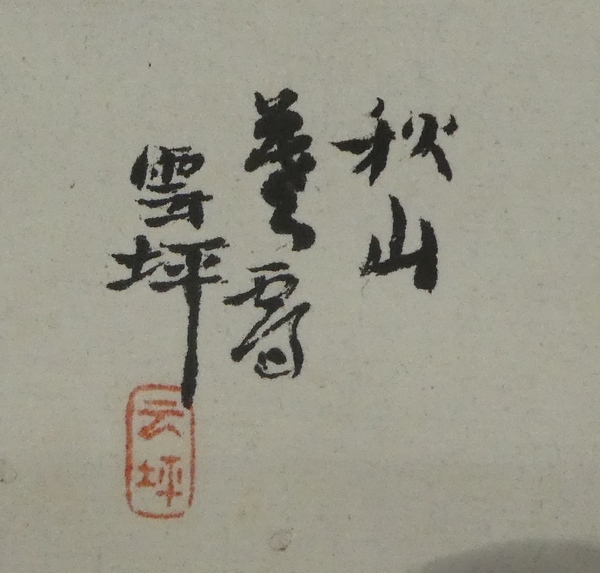 秋山
暮靄
雲坪
云坪